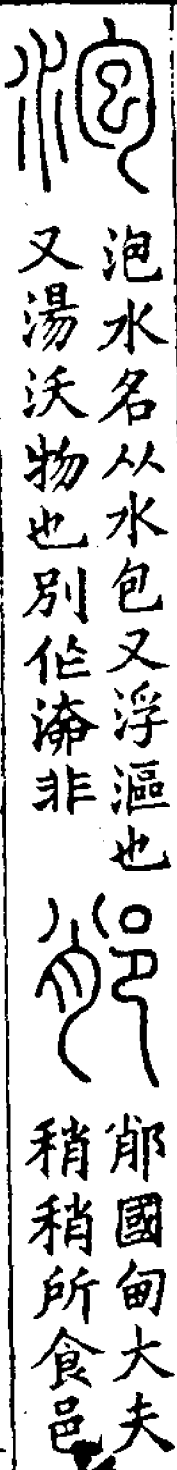 泡
泡水名从水包又浮漚也
又湯沃物也別作⿰氵弗非
䣪
䣪國甸大夫
稍稍所食邑